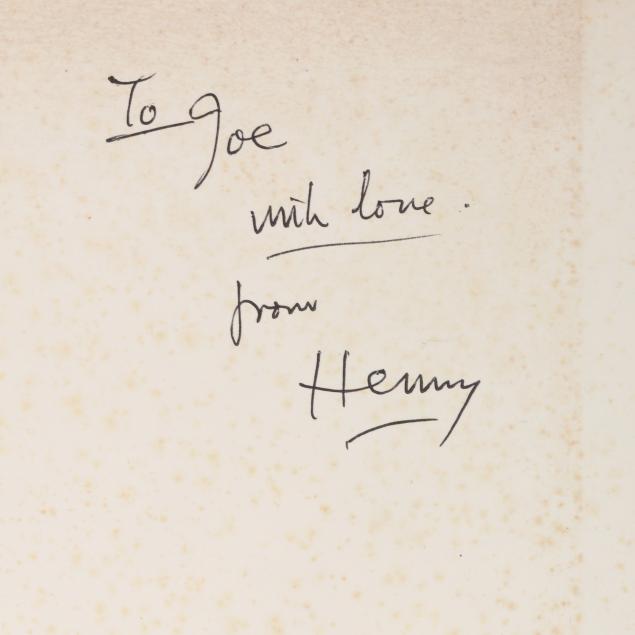 To Joe
with love.
from
Henny